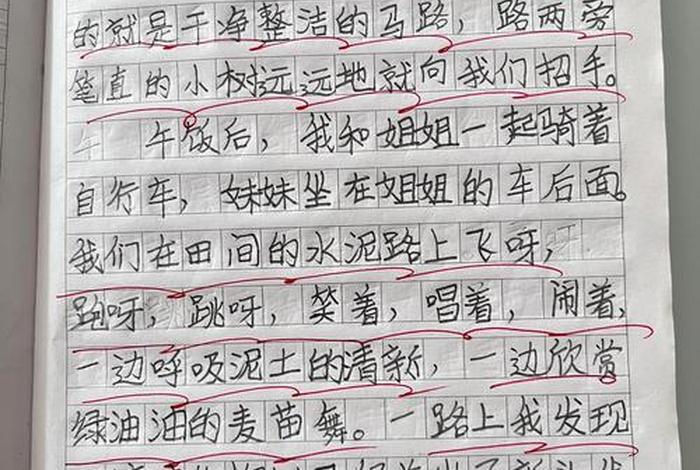 的就是干净整洁的马路，路两旁
笔直的小树远远地就向我们招手。
午饭后，我和姐姐一起骑着
自行车，妹妹坐在姐姐的车后面。
我们在田间的水泥路上飞呀，
跑呀，跳呀，笑着，唱着，闹着，
一边呼吸泥土的清新，一边欣赏
绿油油的麦苗舞。一路上我发现